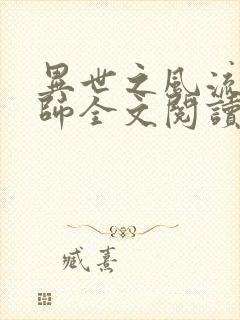 異世之風流
師全文閱讀
臧熹